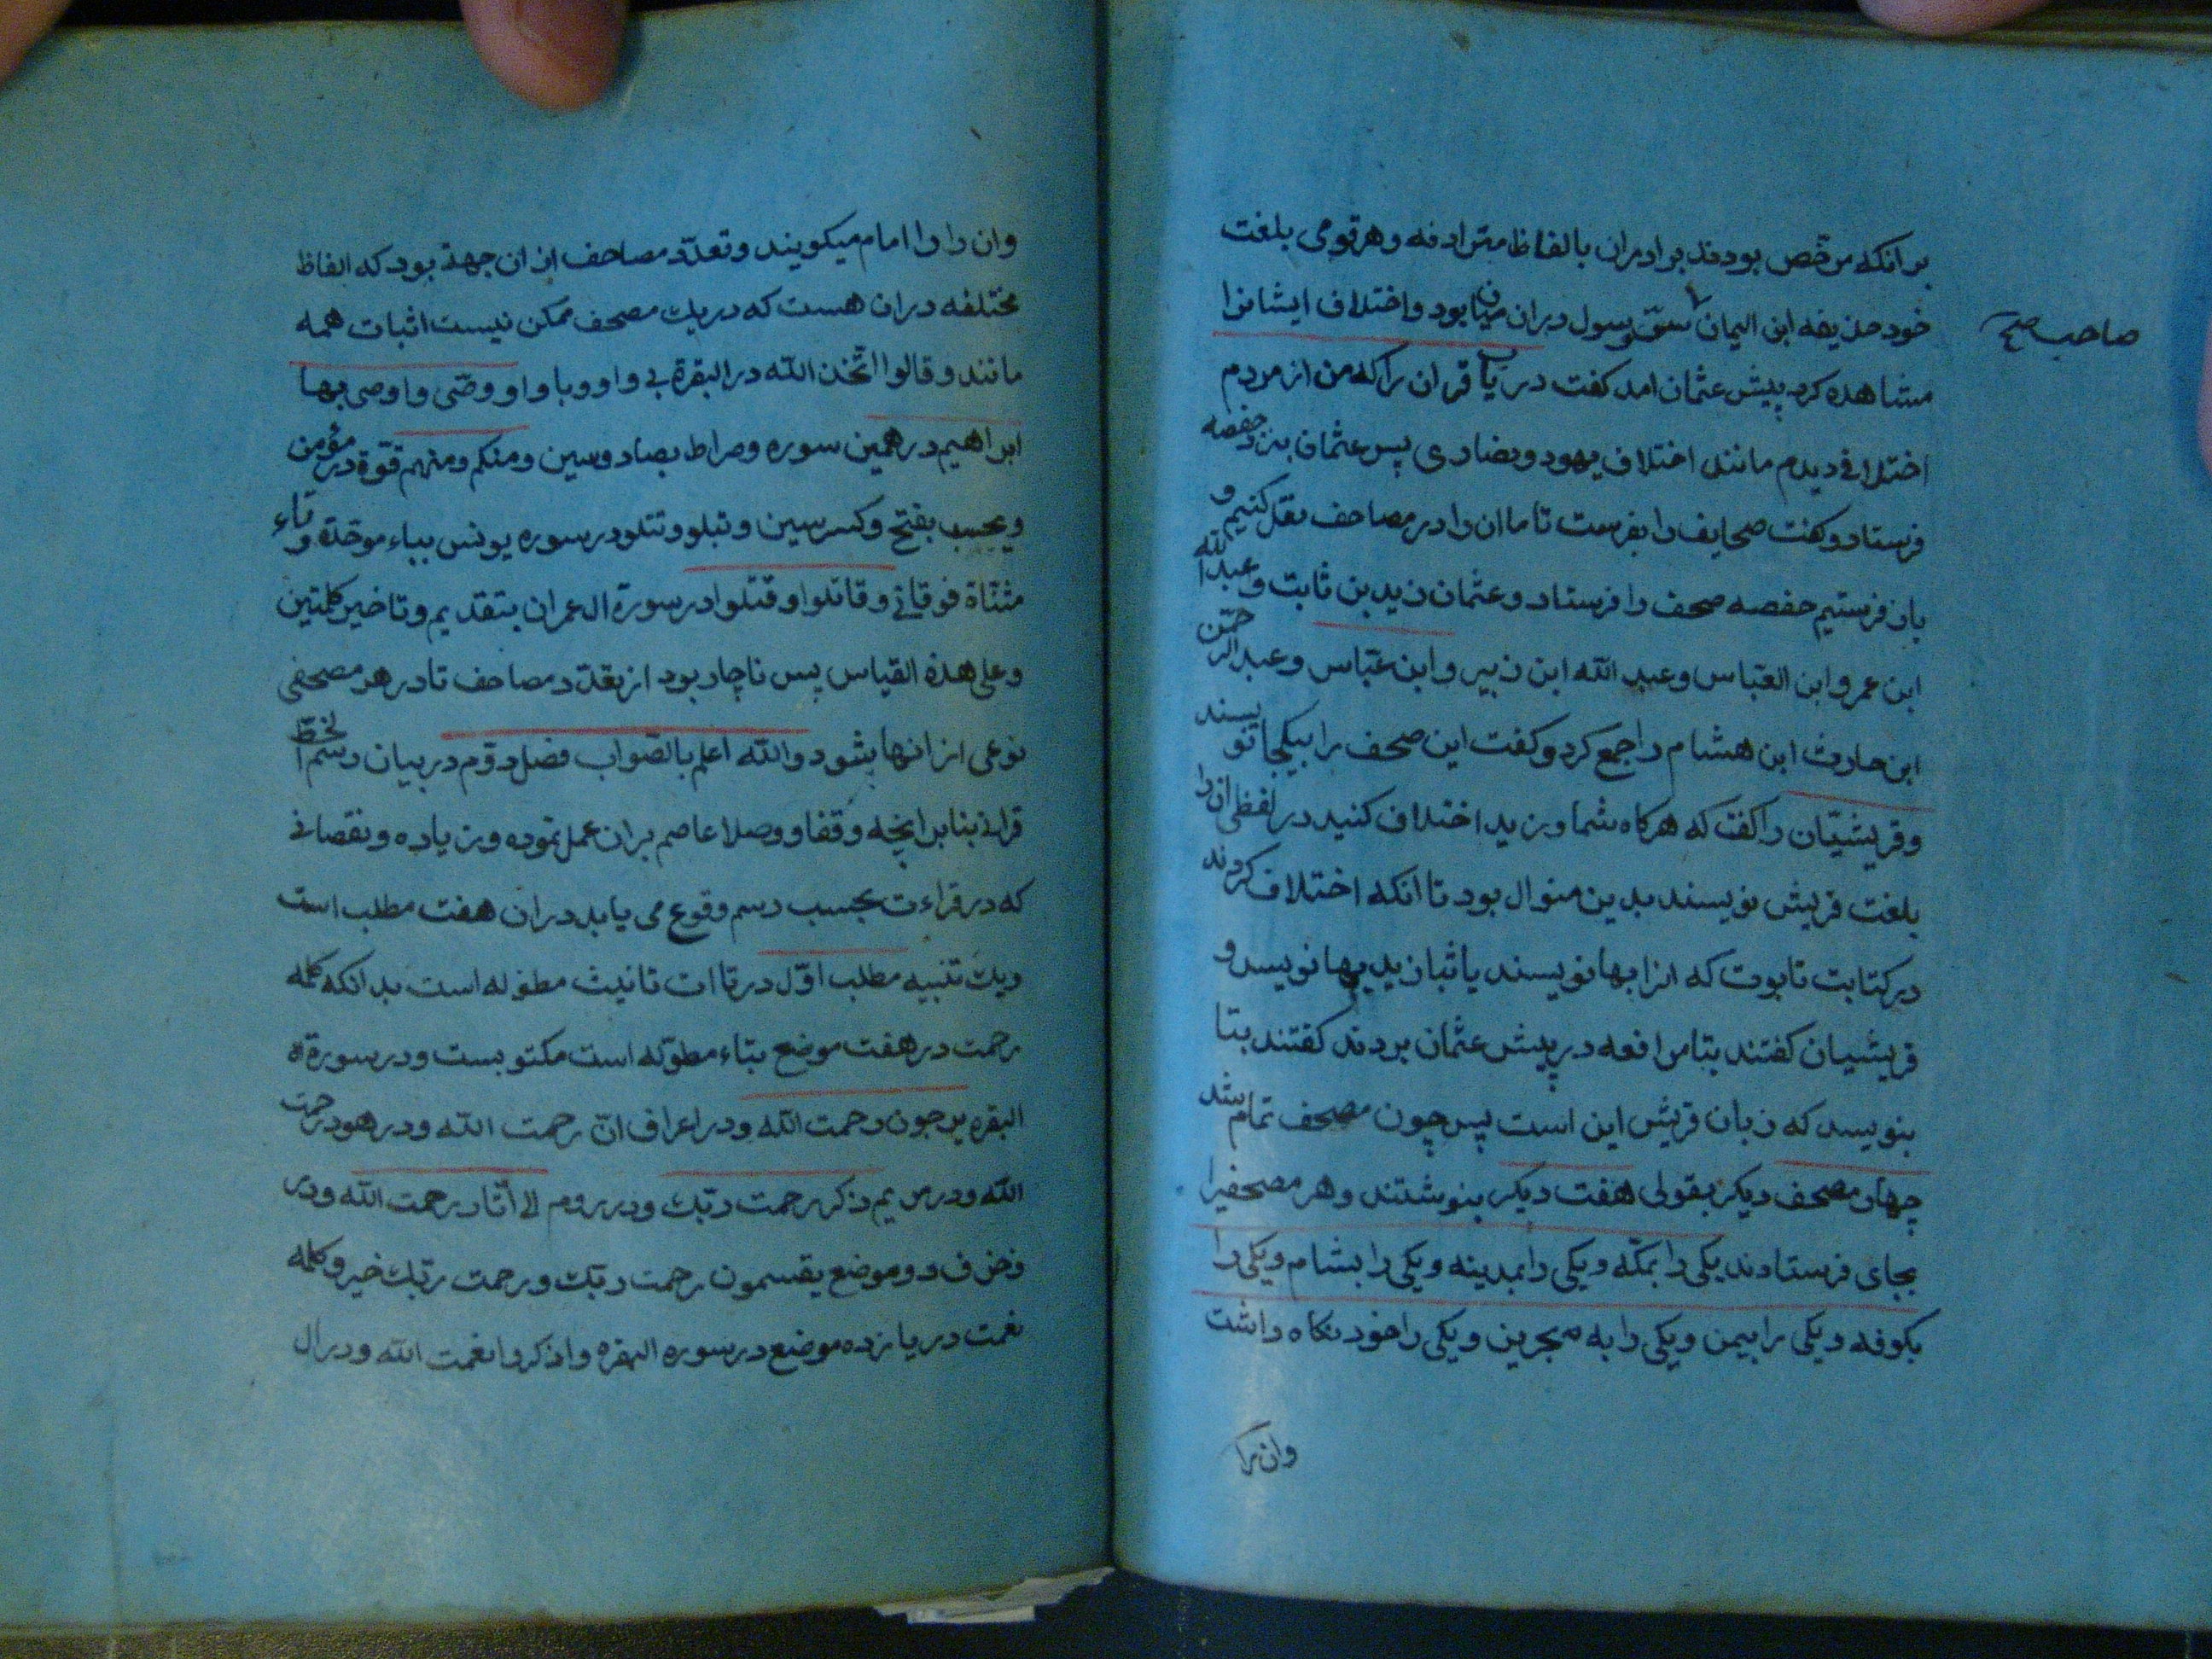 بر انکه مرخّص بودند بر ادران بالفاظ مترادفه وهر قومی بلغت
خود حذیفه ابن الیمان سوّ رسول دران میان بود واختلاف ایشانرا
صاحب صح
مشاهده کرد پیش عثمان امد کفت دریاب قران را که من از مردم
اختلافی دیدم مانند اختلاف یهود ونصاری پس عثمان بنزد حفصه
فرستاد وکفت صحایف را بفرست تا ما ان را در مصاحف نقل کنیم و
باز فرستیم حفصه صحف را فرستاد وعثمان زید بن ثابت وعبد الله
ابن عمر وابن العباس وعبد الله ابن زبیر وابن عباس وعبد الرحمن
ابن حارث ابن هشام را جمع کرد وکفت این صحف را بیکجا نویسند
وقریشیّان را کفت که هرکاه شما وزید اختلاف کنید در لفظی ان را
بلغت قریش نویسند بدین منوال بود تا انکه اختلاف کردند
در کتابت تابوت که انرا بها نویسند یا بتا زید بها نویسد و
قریشیان کفتند بتا مرافعه در پیش عثمان بردند کفتند بتا
بنویسد که زبان قریش این است پس چون مصحف تمام شد
چهار مصحف دیکر بقولی هفت دیکر بنوشتند وهر مصحفیرا
بجای فرستادند یکی را بمکّه ویکی را بمدینه ویکی را بشام ویکی را
بکوفه ویکی را بیمن ویکی را به بحرین ویکی را خود نکاه داشت
وان را
وان را امام میکویند وتعدّد مصاحف از ان جهة بود که الفاظ
مختلفه دران هست که در یك مصحف ممکن نیست اثبات همه
مانند وقالوا اتّخذ اللّه در البقرة بی واو وبا واو ووصّی واوصی بها
ابراهیم در همین سوره وصراط بصاد وسین ومنکم ومنهم قوّة در مؤمن
ویحسب بفتح وکسر سین وتبلو وتتلو در سوره یونس بباء موحّدة وتاء
مثنّاة فوقانی وقاتلوا وقتلوا در سورة ال عمران بتقدیم وتاخیر کلمتین
وعلی هذه القیاس پس ناچار بود از تعدّد مصاحف تا در هر مصحفی
نوعی از انها بشود واللّه اعلم بالصّواب فصل دوّم در بیان رسم الخطّ
قرانی بنابر انچه وقفا ووصلا عاصم بران عمل نموده وزیاده ونقصانی
که در قراءت بحسب رسم وقوع می یابد دران هفت مطلب است
ویك تنبیه مطلب اوّل در تاات تانیث مطوله است بدانکه کلمه
رحمت در هفت موضع بتاء مطوّله است مکتوبست ودر سورة
البقره یرجون رحمت اللّه ودر اعراف انّ رحمت اللّه ودر هود رحمت
اللّه ودر مریم ذکر رحمت ربّك ودر روم الی اثار رحمت اللّه ودر
زخرف دو موضع یقسمون رحمت ربّك ورحمت ربّك خیر وکلمه
نعمت در یازده موضع در سوره البقره واذکروا نعمت اللّه ودر ال